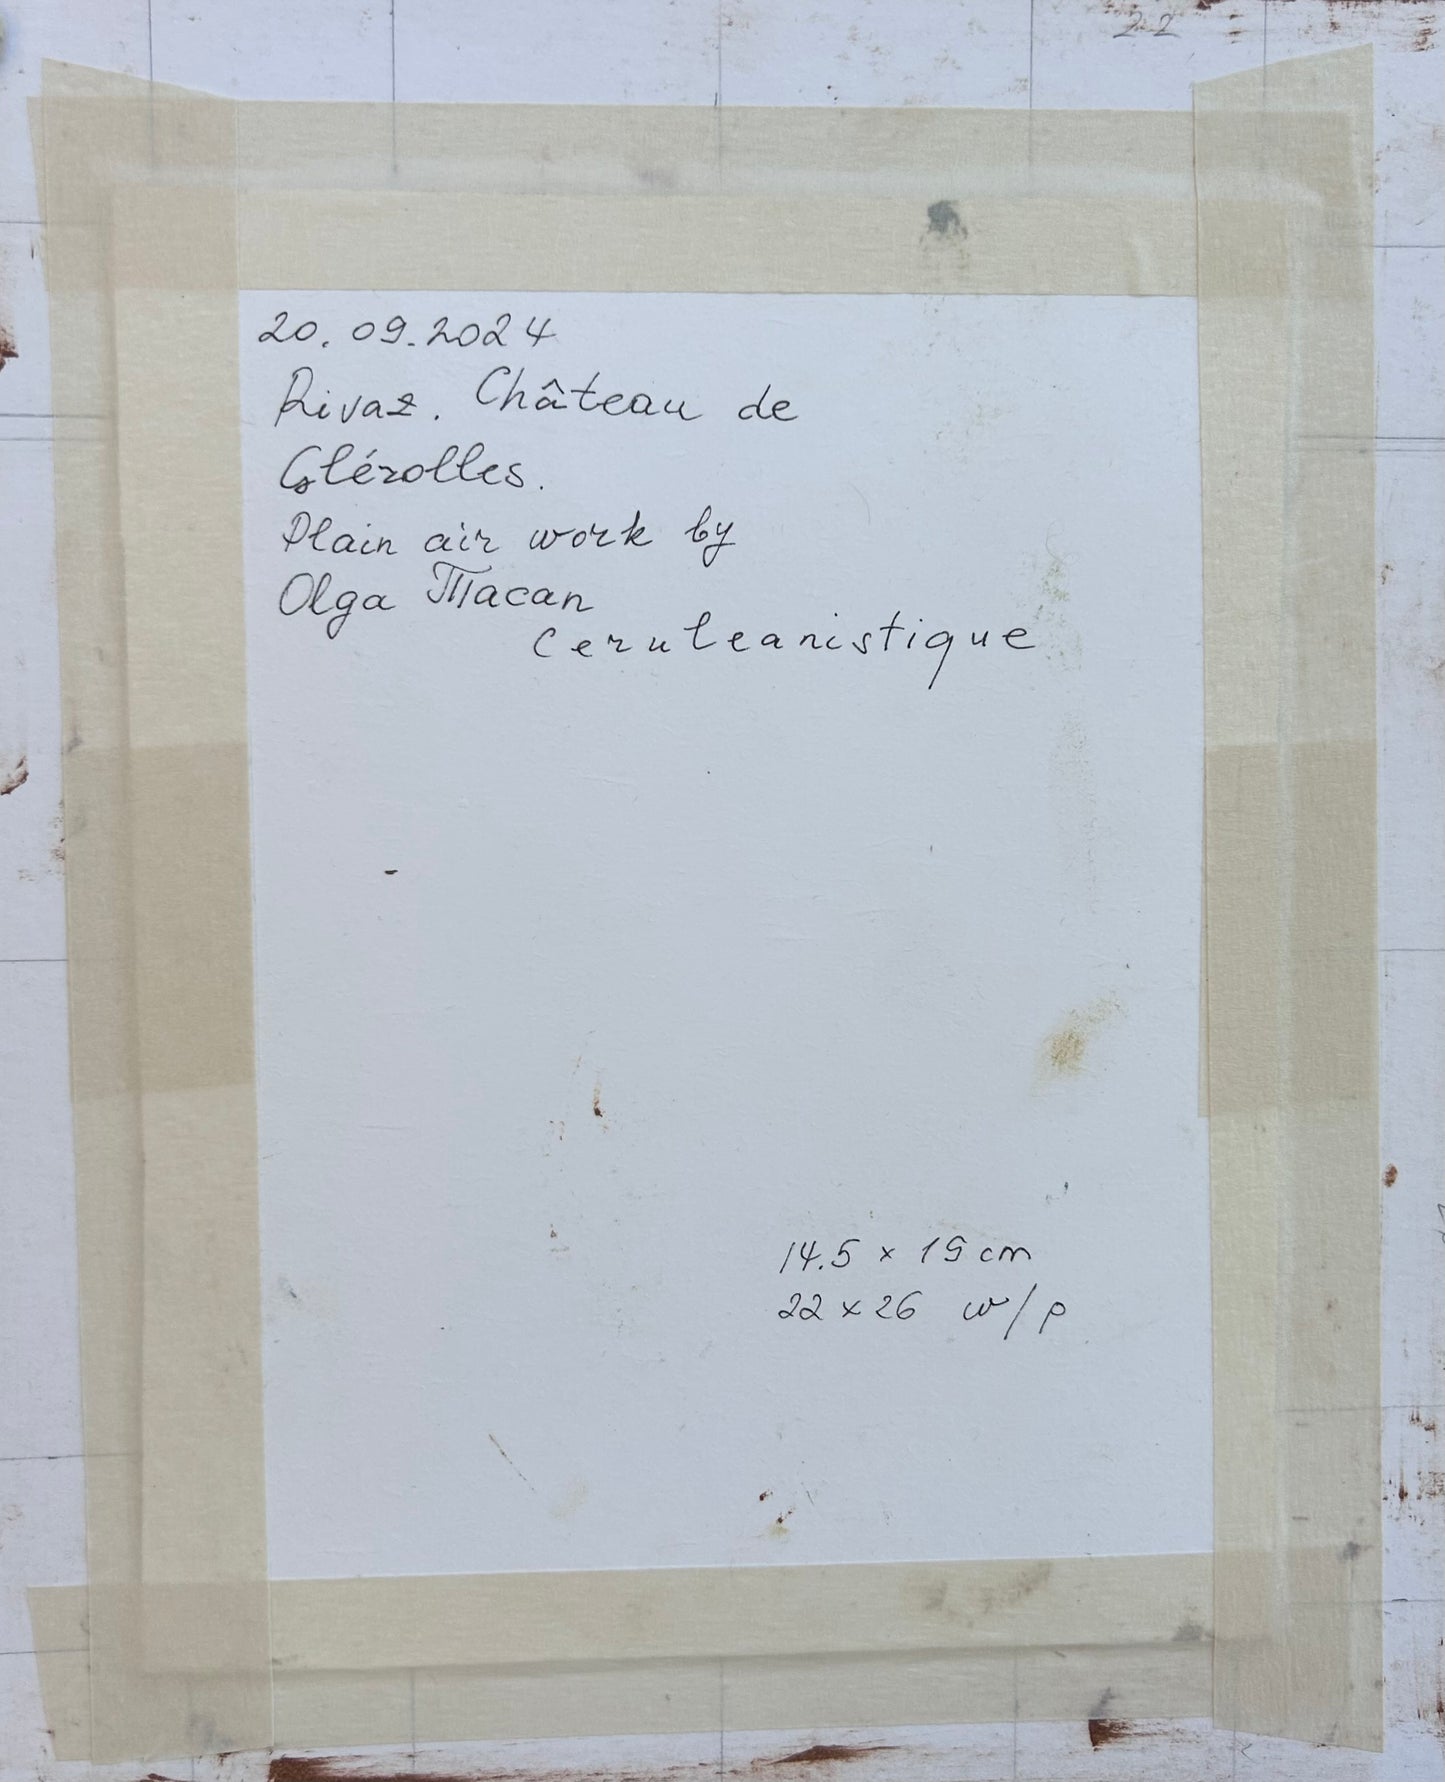 22
20.09.2024
Rivaz. Château de
Glérolles.
Plain air work by
Olga Tacan
Ceruleanistique
14.5 x 19 cm
22 x 26 w/p